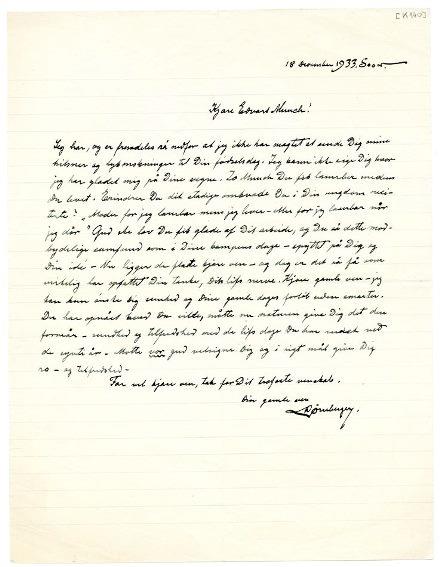 [K 140]
18 December 1933. Soon.
Kjære Edvard Munch!
Jeg har, og er fremdeles så nedfor at jeg ikke har magtet at sende Dig mine
hilsener og lykønskninger til Din fødselsdag. Jeg kan ikke sige Dig hvor
jeg har glædet mig på Dine vegne. Du Munch Du fik laurbær medens
Du levet. Erindrer Du dit stadige omkvæde Du i Din ungdom
"Moder for jeg laurbær mens jeg lever – eller for jeg laurbær når
jeg dør" Gud ske lov Du fik glæde af Dit arbeide, og Du så dette
samfund som i Dine kampens dage – spyttet på Dig og
Din ide – Nu ligger de flate kjære ven – og dog er det så få som
virkelig har opfattet Din tanke, Dit livs nerve. Kjære gamle ven – jeg
kan kun ønske Dig sundhed og Dine gamle dages forløb uden smerter.
Du har opnået hvad Du vilde, måtte nu naturen give Dig det den
formår – sundhed og tilfredshed med de livs dage Du har
de syvti år – Måtte vor gud velsigne Dig og i rigt mål give Dig
ro – og tilfredshed –
Far vel kjære ven, tak for Dit trofaste venskab.
Din gamle ven